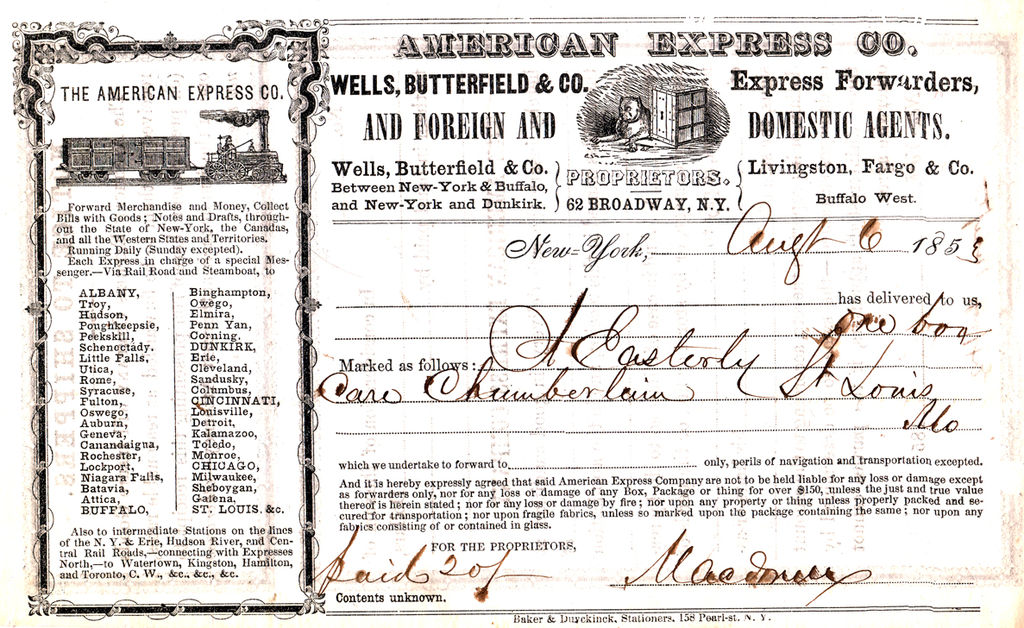 THE AMERICAN EXPRESS CO.
Forward Merchandise and Money, Collect
Bills with Goods; Notes and Drafts, through-
out the State of New-York, the Canadas,
and all the Western States and Territories.
Running Daily (Sunday excepted).
Each Express in charge of a special Mes-
senger.—Via Rail Road and Steamboat, to
ALBANY,
Troy,
Hudson,
Poughkeepsie,
Peekskill,
Schenectady.
Little Falls,
Utica,
Rome,
Syracuse,
Fulton,
Oswego,
Auburn,
Geneva,
Canandaigua,
Rochester,
Lockport,
Niagara Falls,
Batavia,
Attica,
BUFFALO,
Binghampton,
Owego,
Elmira,
Penn Yan,
Corning.
DUNKIRK,
Erie,
Cleveland,
Sandusky,
Columbus,
CINCINNATI,
Louisville,
Detroit,
Kalamazoo,
Toledo,
Monroe,
CHICAGO,
Milwaukee,
Sheboygan,
Galena,
ST. LOUIS. &c.
Also to intermediate Stations on the lines
of the N. Y. & Erie, Hudson River, and Cen-
tral Rail Roads,—connecting with Expresses
North,—to Watertown, Kingston, Hamilton,
and Toronto, C. W., &c., &c., &c.
AMERICAN EXPRESS CO.
WELLS, BUTTERFIELD & CO. Express Forwarders,
AND FOREIGN AND DOMESTIC AGENTS.
Wells, Butterfield & Co.
Between New-York & Buffalo,
and New-York and Dunkirk.
PROPRIETORS.
62 BROADWAY, N.Y.
Livingston, Fargo & Co.
Buffalo West.
New-York, Augt 6 1853
has delivered to us,
one box
Marked as follows: A Easterly St Louis
Care Chamberlain Mo
which we undertake to forward to only, perils of navigation and transportation excepted.
And it is hereby expressly agreed that said American Express Company are not to be held liable for any loss or damage except
as forwarders only, nor for any loss or damage of any Box, Package or thing for over $150, unless the just and true value
thereof is herein stated; nor for any loss or damage by fire; nor upon any property or thing unless properly packed and se-
cured for transportation; nor upon fragile fabrics, unless so marked upon the package containing the same; nor upon any
fabrics consisting of or contained in glass.
FOR THE PROPRIETORS,
paid 20/
Contents unknown.
Baker & Duyckinck, Stationers, 158 Pearl-st. N. Y.